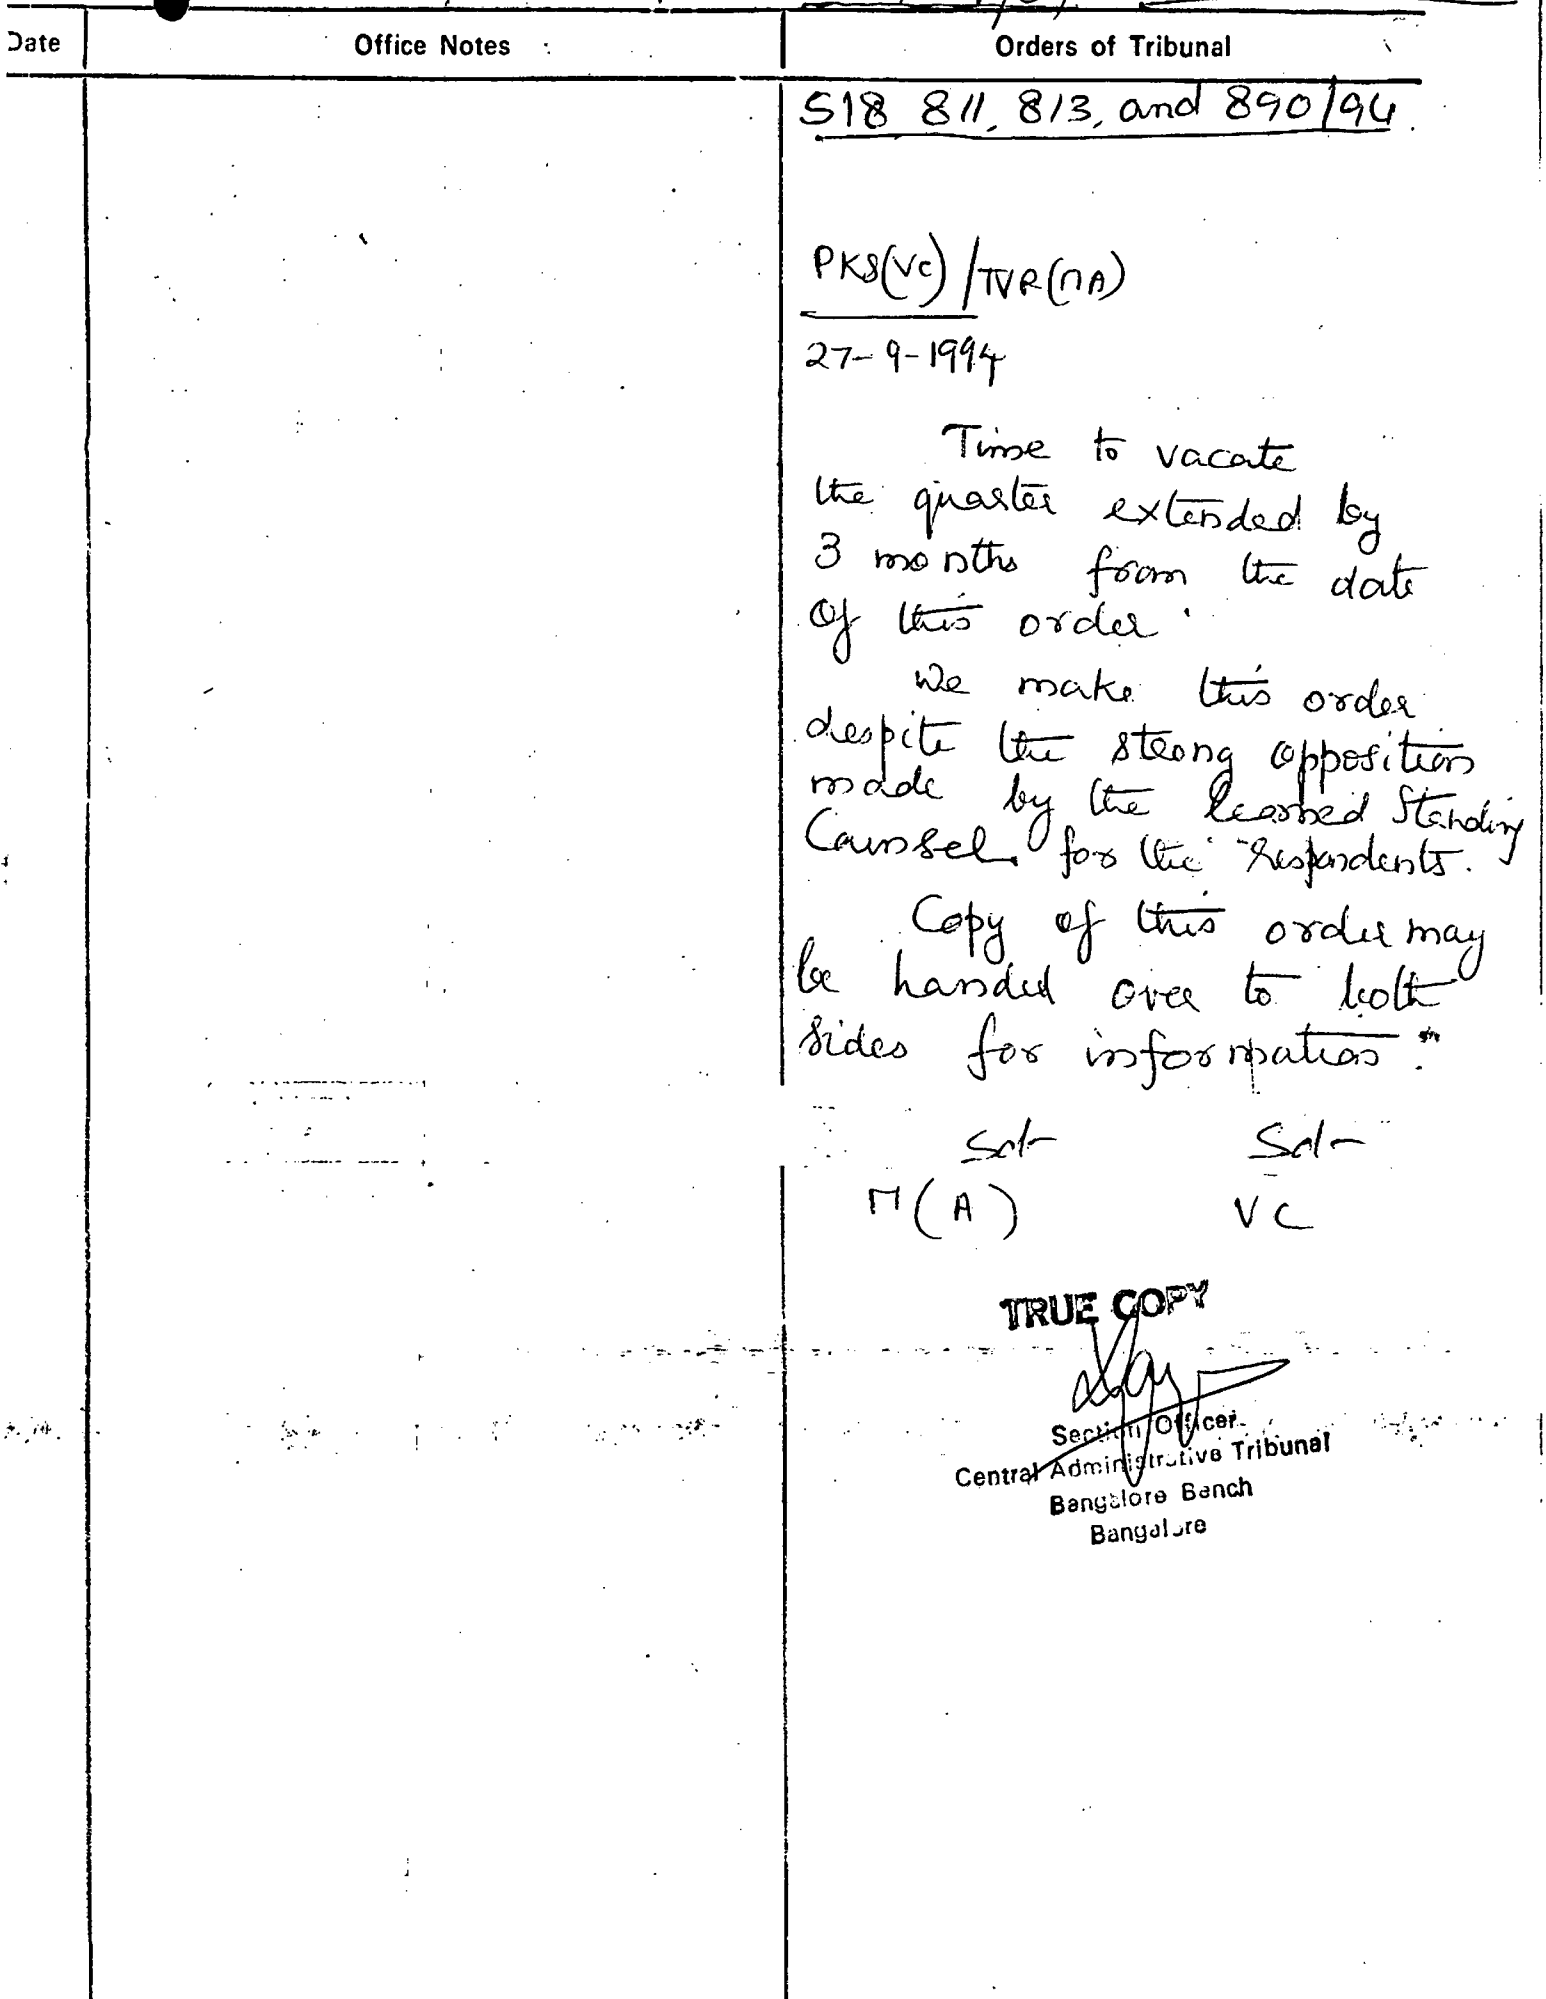 Date
Office Notes
Orders of Tribunal
518 811, 813, and 890/94
PKS(VC) / TVR(MA)
27-9-1994
Time to vacate
the quarter extended by
3 months from the date
of this order.
We make this order
despite the strong opposition
made by the learned Standing
Counsel for the respondents.
Copy of this order may
be handed over to both
sides for information.
Sd/- Sd/-
M(A) VC
TRUE COPY
Section Officer
Central Administrative Tribunal
Bangalore Bench
Bangalore